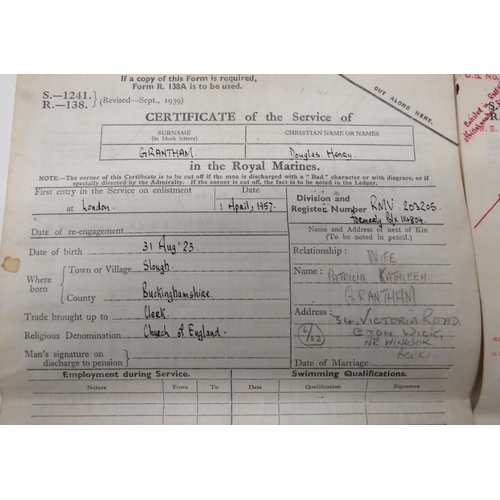 If a copy of this Form is required,
Form R. 138A is to be used.
S.—1241.
R.—138.
(Revised—Sept., 1939)
CUT ALONG HERE.
CERTIFICATE of the Service of
SURNAME
(in block letters)
CHRISTIAN NAME OR NAMES
GRANTHAM
Douglas. Henry.
in the Royal Marines.
NOTE.—The corner of this Certificate is to be cut off if the man is discharged with a "Bad" character or with disgrace, or if
specially directed by the Admiralty. If the corner is cut off, the fact is to be noted in the Ledger.
First entry in the Service on enlistment
Date
at London.
1 April, 1957.
Division and
Register Number
RMV 203205.
formerly Po/x 114804.
Date of re-engagement
Name and Address of next of Kin
(To be noted in pencil.)
Date of birth
31 Aug 23
Relationship: WIFE
Where
born
Town or Village
Slough.
Name: PATRICIA KATHLEEN
GRANTHAM
County
Buckinghamshire.
Trade brought up to
Clerk.
Address: 34, VICTORIA ROAD
ETON WICK,
NR WINDSOR
BERKS.
Religious Denomination
Church of England.
Man's signature on
discharge to pension
Date of Marriage
Employment during Service.
Swimming Qualifications.
Nature
From
To
Date
Qualification
Signature